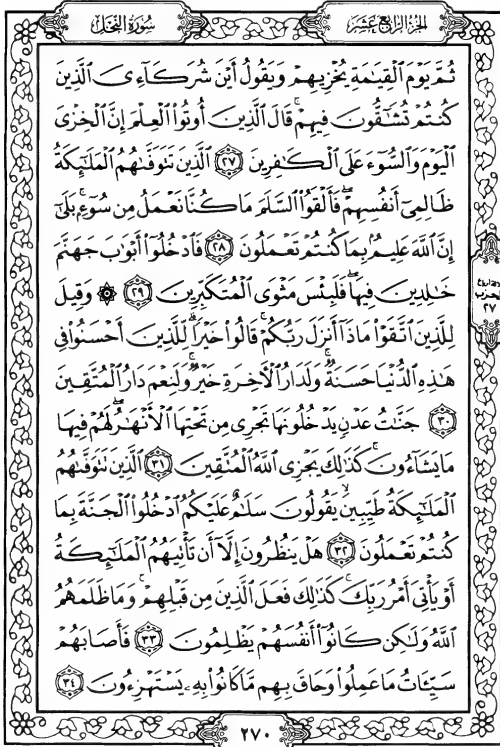 سُورَةُ النَّحْلِ
الجُزءُ الرَّابِعُ عَشَر
ثُمَّ يَوْمَ ٱلْقِيَٰمَةِ يُخْزِيهِمْ وَيَقُولُ أَيْنَ شُرَكَآءِىَ ٱلَّذِينَ
كُنتُمْ تُشَٰٓقُّونَ فِيهِمْ ۚ قَالَ ٱلَّذِينَ أُوتُوا۟ ٱلْعِلْمَ إِنَّ ٱلْخِزْىَ
ٱلْيَوْمَ وَٱلسُّوٓءَ عَلَى ٱلْكَٰفِرِينَ ٢٧ ٱلَّذِينَ تَتَوَفَّىٰهُمُ ٱلْمَلَٰٓئِكَةُ
ظَالِمِىٓ أَنفُسِهِمْ ۖ فَأَلْقَوُا۟ ٱلسَّلَمَ مَا كُنَّا نَعْمَلُ مِن سُوٓءٍۭ ۚ بَلَىٰٓ
إِنَّ ٱللَّهَ عَلِيمٌۢ بِمَا كُنتُمْ تَعْمَلُونَ ٢٨ فَٱدْخُلُوٓا۟ أَبْوَٰبَ جَهَنَّمَ
خَٰلِدِينَ فِيهَا ۖ فَلَبِئْسَ مَثْوَى ٱلْمُتَكَبِّرِينَ ٢٩ ۞ وَقِيلَ
لِلَّذِينَ ٱتَّقَوْا۟ مَاذَآ أَنزَلَ رَبُّكُمْ ۚ قَالُوا۟ خَيْرًا ۗ لِّلَّذِينَ أَحْسَنُوا۟ فِى
هَٰذِهِ ٱلدُّنْيَا حَسَنَةٌ ۚ وَلَدَارُ ٱلْءَاخِرَةِ خَيْرٌ ۚ وَلَنِعْمَ دَارُ ٱلْمُتَّقِينَ
٣٠ جَنَّٰتُ عَدْنٍ يَدْخُلُونَهَا تَجْرِى مِن تَحْتِهَا ٱلْأَنْهَٰرُ ۖ لَهُمْ فِيهَا
مَا يَشَآءُونَ ۚ كَذَٰلِكَ يَجْزِى ٱللَّهُ ٱلْمُتَّقِينَ ٣١ ٱلَّذِينَ تَتَوَفَّىٰهُمُ
ٱلْمَلَٰٓئِكَةُ طَيِّبِينَ ۙ يَقُولُونَ سَلَٰمٌ عَلَيْكُمُ ٱدْخُلُوا۟ ٱلْجَنَّةَ بِمَا
كُنتُمْ تَعْمَلُونَ ٣٢ هَلْ يَنظُرُونَ إِلَّآ أَن تَأْتِيَهُمُ ٱلْمَلَٰٓئِكَةُ
أَوْ يَأْتِىَ أَمْرُ رَبِّكَ ۚ كَذَٰلِكَ فَعَلَ ٱلَّذِينَ مِن قَبْلِهِمْ ۚ وَمَا ظَلَمَهُمُ
ٱللَّهُ وَلَٰكِن كَانُوٓا۟ أَنفُسَهُمْ يَظْلِمُونَ ٣٣ فَأَصَابَهُمْ
سَيِّـَٔاتُ مَا عَمِلُوا۟ وَحَاقَ بِهِم مَّا كَانُوا۟ بِهِۦ يَسْتَهْزِءُونَ ٣٤
الحزب
٢٧
٢٧٠